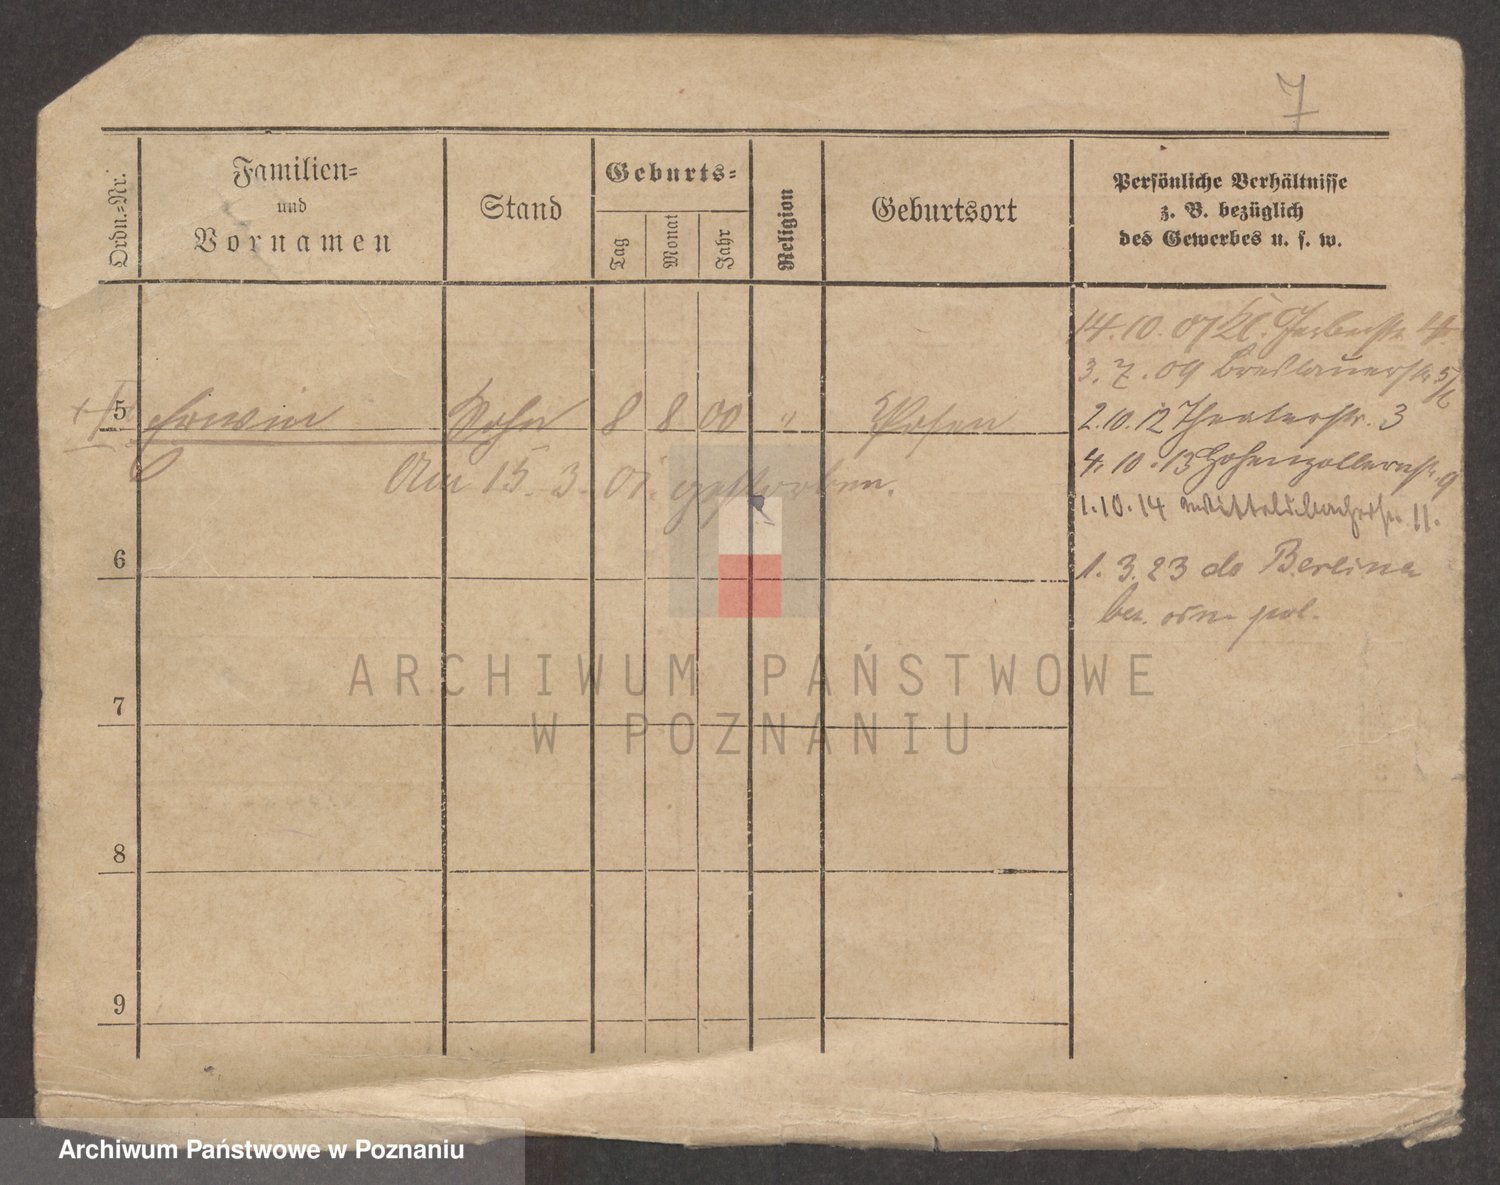 7
Ordn.-Nr.
Familien-
und
Vornamen
Stand
Geburts-
Tag
Monat
Jahr
Religion
Geburtsort
Persönliche Verhältnisse
z. B. bezüglich
des Gewerbes u. s. w.
14. 10. 07 Kl. Gerberstr. 4
3. 7. 09 Breslauerstr. 5/6
5 Erwin Sohn 8 8 00 " Posen
2. 10. 12 Theaterstr. 3
Am 15. 3. 01. gestorben.
4. 10. 13 Hohenzollernstr. 9
1. 10. 14 Wittelsbacherstr. 11.
6
1. 3. 23 do Berlina
pol.
7
8
9
ARCHIWUM PAŃSTWOWE
W POZNANIU
Archiwum Państwowe w Poznaniu